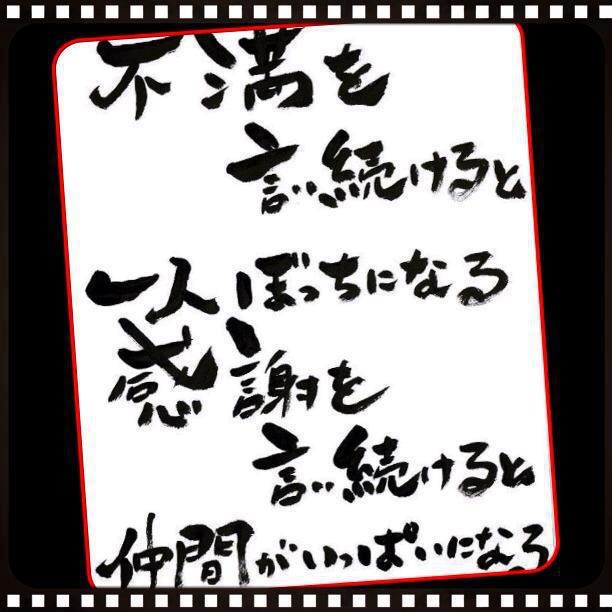 不満を
言い続けると
一人ぼっちになる
感謝を
言い続けると
仲間がいっぱいになる